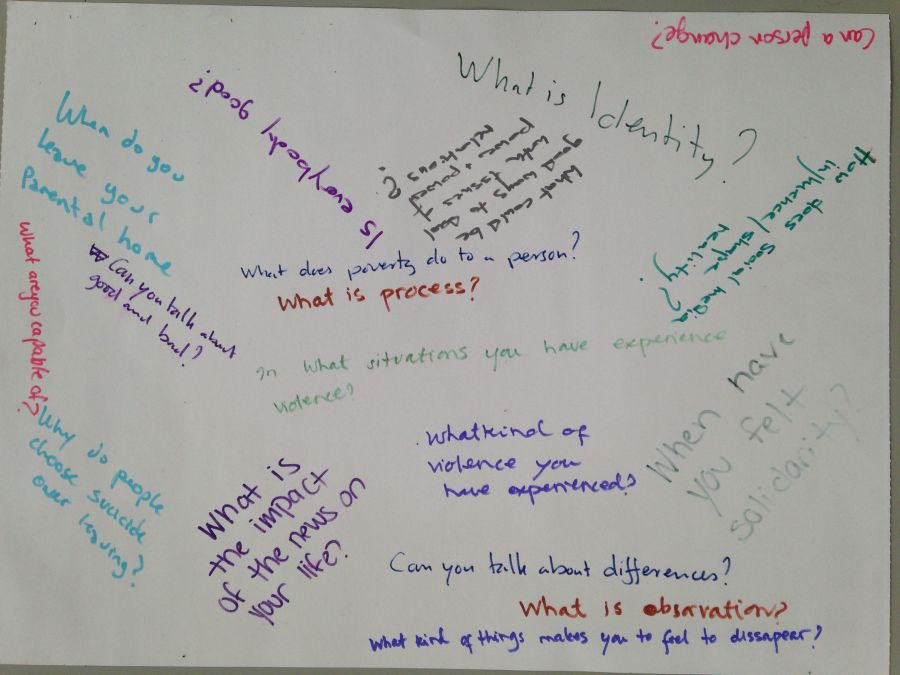 Can a person change?
What is Identity?
Is everybody good?
When do you
leave your
Parental home
What could be
good ways to deal
with issues of
power + power
relations?
How does social media
influence/shape
reality?
What are you capable of?
Can you talk about
good and bad?
What does poverty do to a person?
What is process?
In what situations you have experience
violence?
What kind of
violence you
have experienced?
When have
you felt
solidarity?
Why do people
choose suicide
over leaving?
What is
the impact
of the news on
your life?
Can you talk about differences?
What is obsarvation?
What kind of things makes you to feel to dissapear?